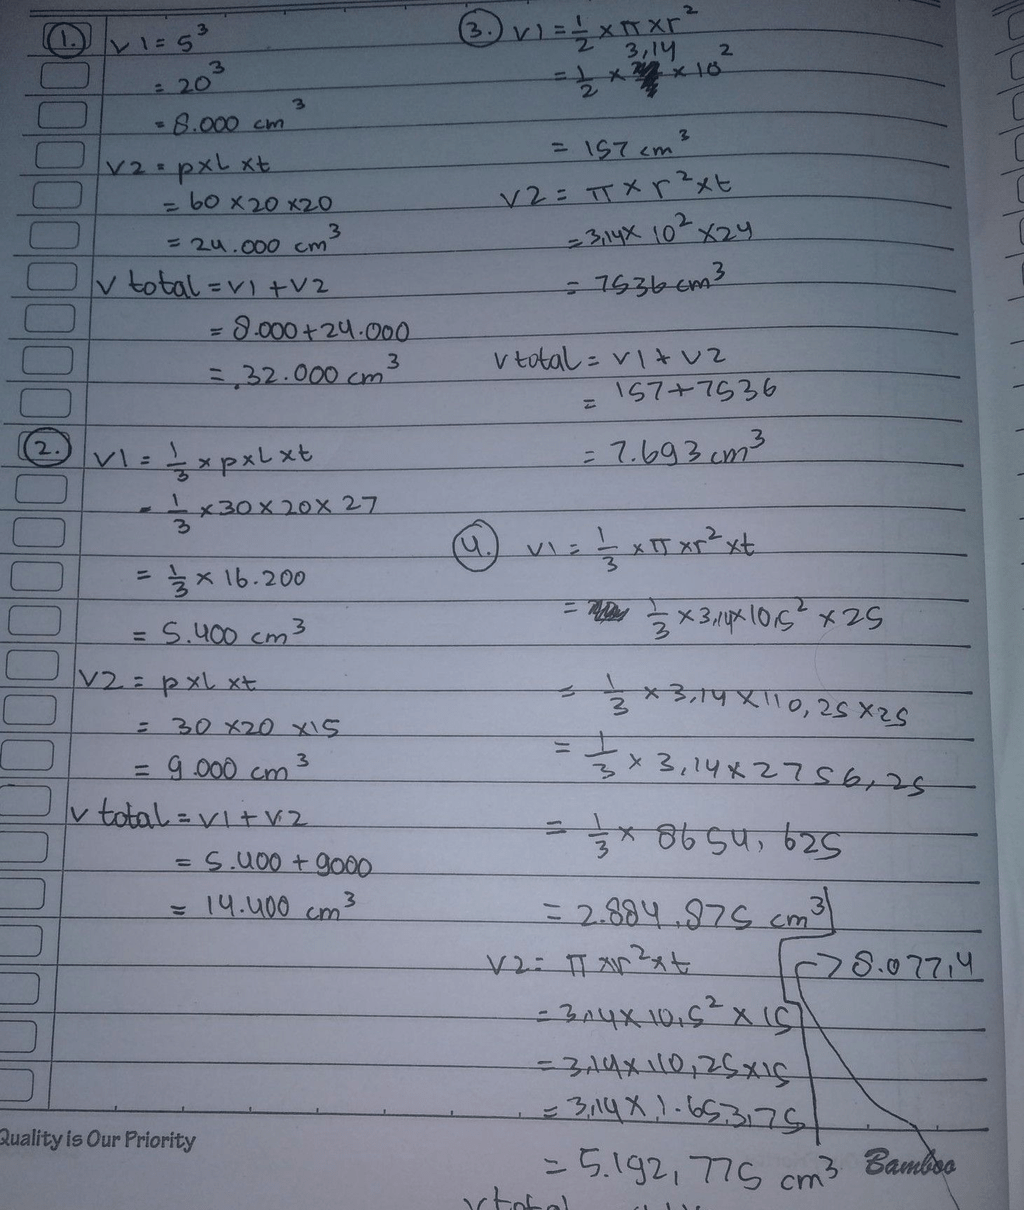 1. V1 = S³
= 20³
= 8.000 cm³
V2 = p x L x t
= 60 x 20 x 20
= 24.000 cm³
V total = V1 + V2
= 8.000 + 24.000
= 32.000 cm³
2. V1 = 1/3 x p x L x t
= 1/3 x 30 x 20 x 27
= 1/3 x 16.200
= 5.400 cm³
V2 = p x L x t
= 30 x 20 x 15
= 9.000 cm³
V total = V1 + V2
= 5.400 + 9000
= 14.400 cm³
3. V1 = 1/2 x π x r²
= 1/2 x 3,14 x 10²
= 157 cm³
V2 = π x r² x t
= 3,14 x 10² x 24
= 7536 cm³
V total = V1 + V2
= 157 + 7536
= 7.693 cm³
4. V1 = 1/3 x π x r² x t
= 1/3 x 3,14 x 10,5² x 25
= 1/3 x 3,14 x 110,25 x 25
= 1/3 x 3,14 x 2756,25
= 1/3 x 8654,625
= 2.884,875 cm³
V2 = π x r² x t
→ 8.077,4
= 3,14 x 10,5² x 15
= 3,14 x 110,25 x 15
= 3,14 x 1.653,75
= 5.192,775 cm³
V total
Quality is Our Priority
Bamboo